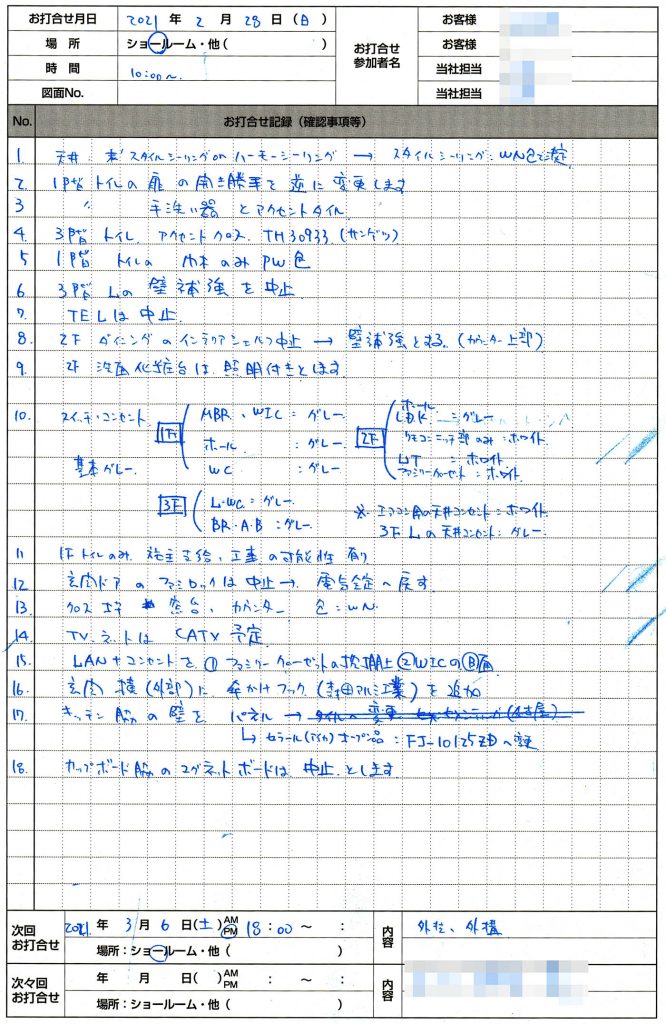 お打合せ月日 2021 年 2 月 28 日 (日)
場所 ショールーム・他 ( )
時間 10:00〜
図面No.
お打合せ参加者名
お客様
お客様
当社担当
当社担当
No. お打合せ記録（確認事項等）
1 天井: スタイルシーリング or ハーモシーリング → スタイルシーリング: WN色で選定
2. 1階トイレの扉の開き勝手を逆に変更します
3 〃 手洗い器とアクセントタイル
4. 3階トイレ. アクセントクロス. TH30933. (サンゲツ)
5 1階トイレの巾木のみPW色
6 3階Lの壁補強を中止
7. TELは中止.
8. 2F ダイニングのインテリアシェルフ中止 → 壁補強とする。(カウンター上部)
9. 2F 洗面化粧台は、照明付きとします
10. スイッチ・コンセント
基本グレー.
1F
MBR・WIC: グレー
ホール : グレー
WC : グレー
2F
ホール
LDK : グレー
リモコンニッチ部のみ: ホワイト.
UT : ホワイト
ファミリークローゼット: ホワイト.
3F
L・WC: グレー
BR・A・B: グレー
※ エアコン用の天井コンセント: ホワイト.
3F Lの天井コンセント: グレー.
11 1Fトイレのみ 施主支給、工事の可能性有り
12 玄関ドアのファミロックは中止 → 電気錠へ戻す
13 クロス 窓台、カウンター 色: WN
14 TV. ネットは CATV 予定
15. LAN+コンセントを ① ファミリークローゼットの枕棚上 ②WICのⒷ面
16. 玄関横(外部)に 傘かけフック (寺田アルミ工業)を追加
17. キッチン脇の壁を パネル →
↳ セラール(アイカ)オープン品: FJ-10125ZDへ変更
18. カップボード脇のマグネットボードは中止とします
次回お打合せ 2021 年 3 月 6 日 (土) AM PM 18:00 〜 :
内容 外柱、外構
場所：ショールーム・他 ( )
次々回お打合せ 年 月 日 ( ) AM PM : 〜 :
内容
場所：ショールーム・他 ( )